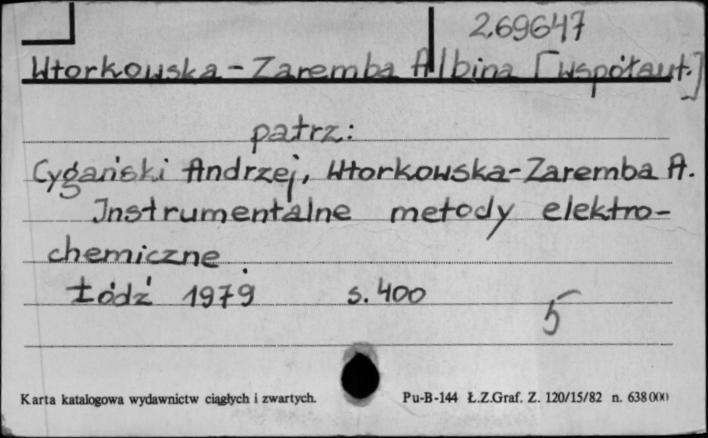 269647
Wtorkowska-Zaremba Albina [współaut.]
patrz:
Cygański Andrzej, Wtorkowska-Zaremba A.
Instrumentalne metody elektro-
chemiczne.
Łódź 1979 s. 400
5
Karta katalogowa wydawnictw ciągłych i zwartych. Pu-B-144 Ł.Z.Graf. Z. 120/15/82 n. 638000